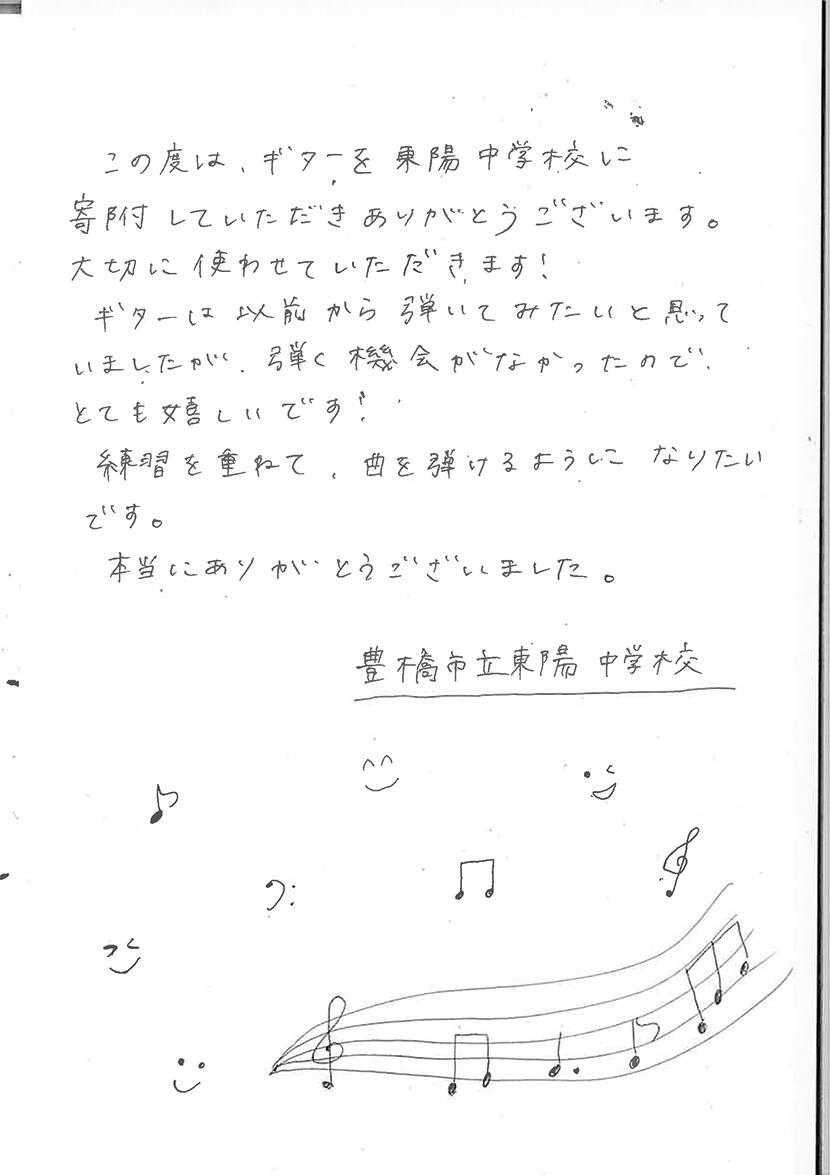 この度は、ギターを東陽中学校に
寄附していただきありがとうございます。
大切に使わせていただきます!
ギターは以前から弾いてみたいと思って
いましたが、弾く機会がなかったので、
とても嬉しいです!
練習を重ねて、曲を弾けるようになりたい
です。
本当にありがとうございました。
豊橋市立東陽中学校